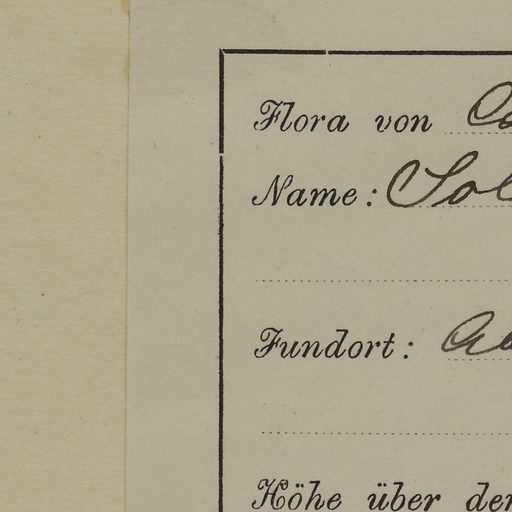 Flora von
Name: Sol
Fundort:
Höhe über der